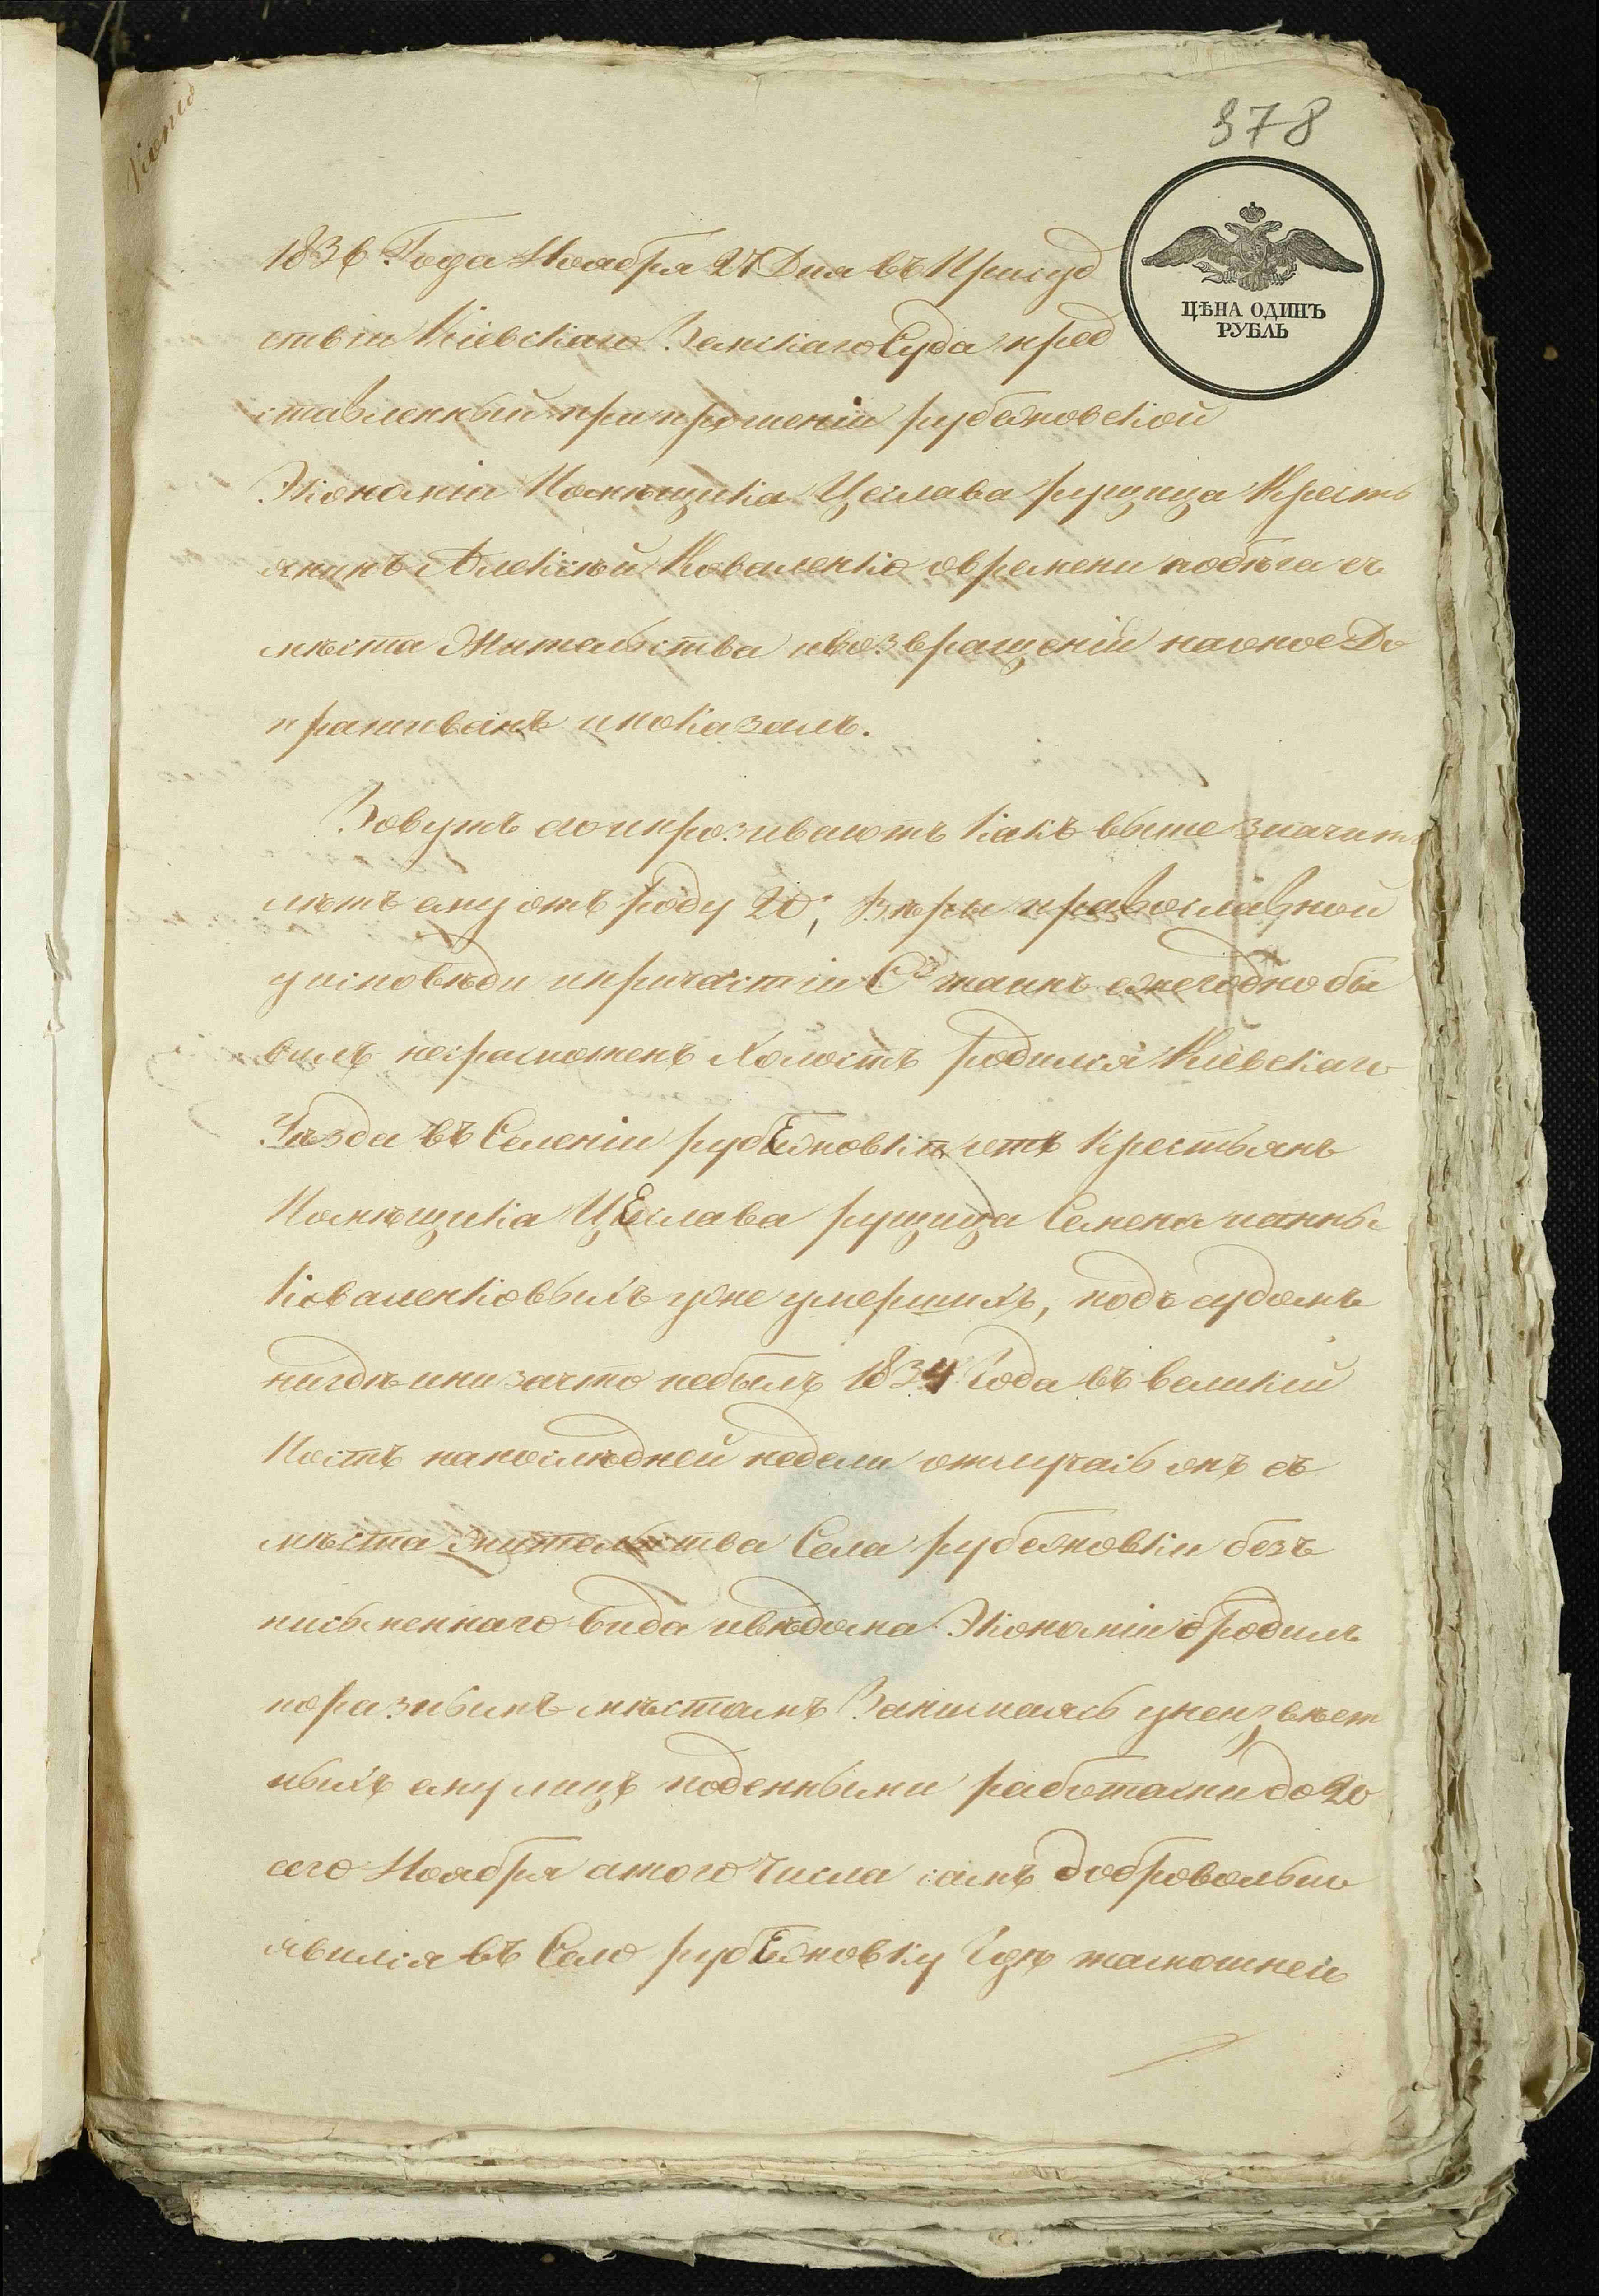 378
ЦѢНА ОДИНЪ
РУБЛЬ
1836 Года Ноября 27 Дня въ Присуд
ствіи Кіевскаго Земскаго Суда пред
ставленный при прошеніи рубежовской
Экономіи Помѣщика Цеслава рущица Кресть
янинъ Алексѣй Коваленко овремени побѣга съ
мѣста Жительства ивозвращеніи наоное До
прашиванъ ипоказалъ.
Зовутъ его ипрозиваютъ какъ выше значитъ
лѣтъ ему отъ роду 20, Вѣры православной
уисповѣди ипричастіи Сх таинъ ежегодно бы
валъ неграмотенъ Холостъ родился Кіевскаго
Уѣзда въ Селеніи рубЕжовкѣ отъ Крестьянъ
Помѣщика ЦЕслава рущица Семена ианны
Коваленковыхъ уже умершихъ, подъ судомъ
нигдѣ ини зачто небылъ 1834 Года въ великій
Постъ напослѣдней недели отлучась онъ съ
мѣста жительства Села рубежовки безъ
письменнаго вида ивѣдома Экономіи бродилъ
поразнымъ мѣстамъ Занимаясь унеизвѣст
ныхъ ему лицъ поденными работами до 20
сего Ноября атого числа самъ добровольно
явился въ Село рубЕжовку Гдѣ тамошней